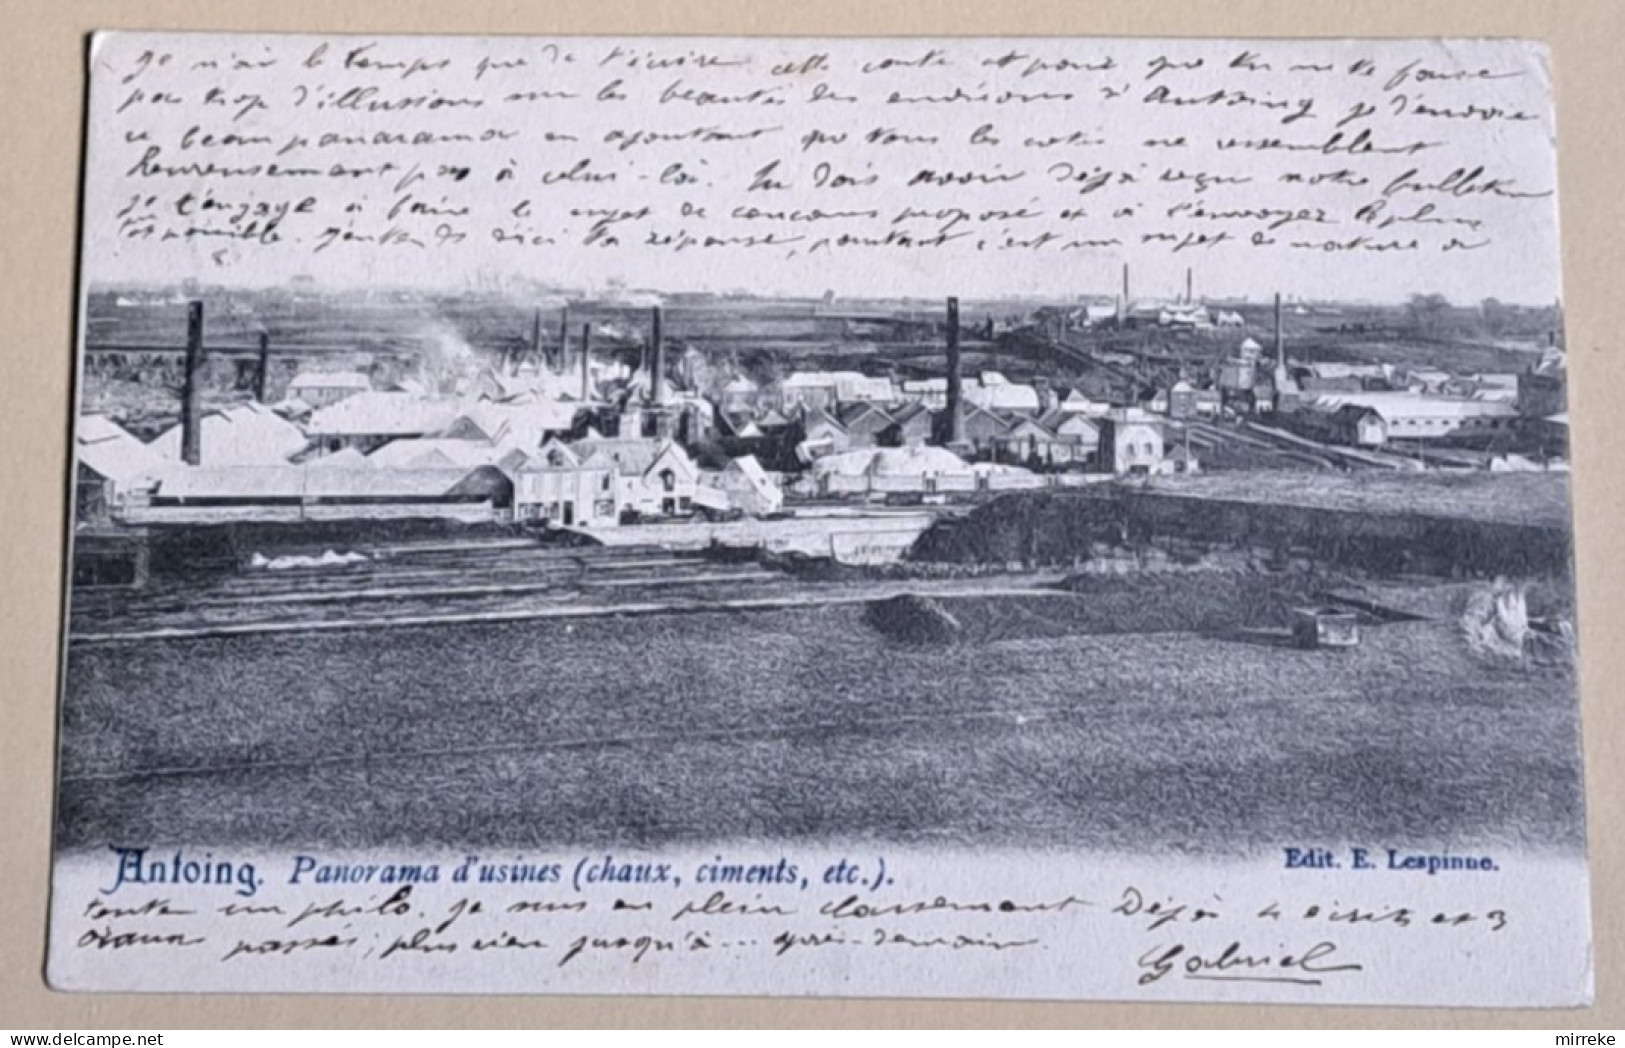 Je n'ai le temps que de t'écrire cette carte et pour que tu ne te fasse
pas trop d'illusions sur les beautés des environs d'Antoing je t'envoie
ce beau panorama en ajoutant que tous les cotés ne ressemblent
heureusement pas à celui-là. Tu dois avoir déjà reçu notre bulletin
je t'engage à faire le sujet de concours proposé et à l'envoyer le plus
tôt possible. J'attends d'ici ta réponse, pourtant c'est un sujet de nature à
Antoing. Panorama d'usines (chaux, ciments, etc.).
Edit. E. Lespinne.
tenter un philo. Je suis en plein classement Déjà 4 écrits et 3
oraux passés; plus rien jusqu'à... après-demain.
Gabriel
delcampe.net
mirreke